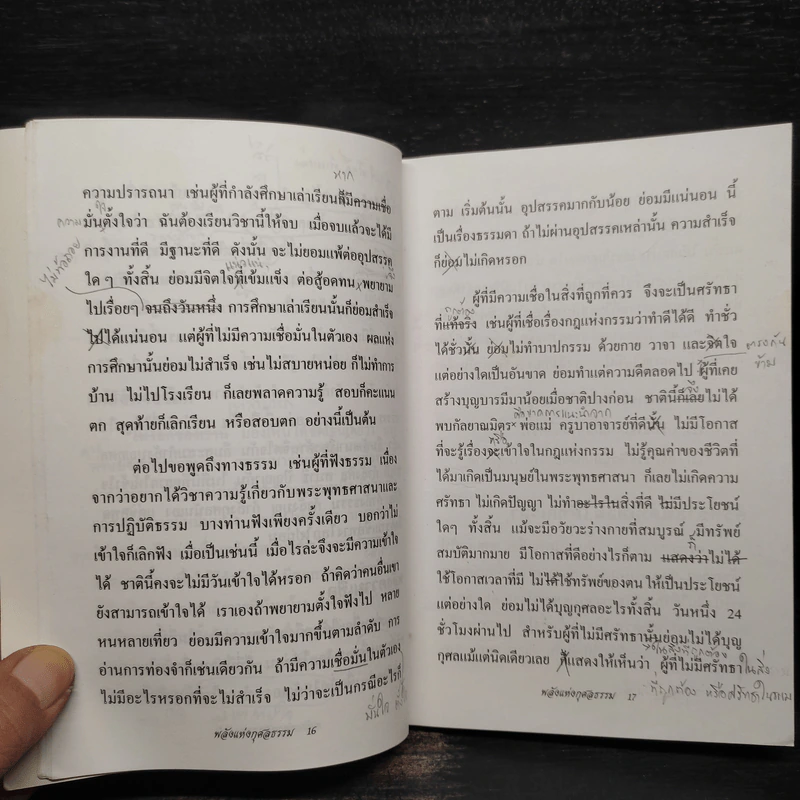 หาก
ความปรารถนา เช่นผู้ที่กำลังศึกษาเล่าเรียนก็มีความเชื่อ
มั่นตั้งใจว่า ฉันต้องเรียนวิชานี้ให้จบ เมื่อจบแล้วจะได้มี
การงานที่ดี มีฐานะที่ดี ดังนั้น จะไม่ยอมแพ้ต่ออุปสรรค
ใดๆ ทั้งสิ้น ย่อมมีจิตใจที่เข้มแข็ง ต่อสู้อดทน พยายาม
ไปเรื่อยๆ จนถึงวันหนึ่ง การศึกษาเล่าเรียนนั้นก็ย่อมสำเร็จ
ไปได้แน่นอน แต่ผู้ที่ไม่มีความเชื่อมั่นในตัวเอง ผลแห่ง
การศึกษานั้นย่อมไม่สำเร็จ เช่นไม่สบายหน่อย ก็ไม่ทำการ
บ้าน ไม่ไปโรงเรียน ก็เลยพลาดความรู้ สอบก็คะแนน
ตก สุดท้ายก็เลิกเรียน หรือสอบตก อย่างนี้เป็นต้น
ต่อไปขอพูดถึงทางธรรม เช่นผู้ที่ฟังธรรม เนื่อง
จากว่าอยากได้วิชาความรู้เกี่ยวกับพระพุทธศาสนาและ
การปฏิบัติธรรม บางท่านฟังเพียงครั้งเดียว บอกว่าไม่
เข้าใจก็เลิกฟัง เมื่อเป็นเช่นนี้ เมื่อไรล่ะจึงจะมีความเข้าใจ
ได้ ชาตินี้คงจะไม่มีวันเข้าใจได้หรอก ถ้าคิดว่าคนอื่นเขา
ยังสามารถเข้าใจได้ เราเองถ้าพยายามตั้งใจฟังไป หลาย
หนหลายเที่ยว ย่อมมีความเข้าใจมากขึ้นตามลำดับ การ
อ่านการท่องจำก็เช่นเดียวกัน ถ้ามีความเชื่อมั่นในตัวเอง
ไม่มีอะไรหรอกที่จะไม่สำเร็จ ไม่ว่าจะเป็นกรณีอะไรก็
พลังแห่งกุศลธรรม 16
ตาม เริ่มต้นนั้น อุปสรรคมากกับน้อย ย่อมมีแน่นอน นี้
เป็นเรื่องธรรมดา ถ้าไม่ผ่านอุปสรรคเหล่านั้น ความสำเร็จ
ก็ย่อมไม่เกิดหรอก
ผู้ที่มีความเชื่อในสิ่งที่ถูกที่ควร จึงจะเป็นศรัทธา
ที่แท้จริง เช่นผู้ที่เชื่อเรื่องกฎแห่งกรรมว่าทำดีได้ดี ทำชั่ว
ได้ชั่วนั้น ย่อมไม่ทำบาปกรรม ด้วยกาย วาจา และจิตใจ
แต่อย่างใดเป็นอันขาด ย่อมทำแต่ความดีตลอดไป ผู้ที่เคย
ตรงกันข้าม
สร้างบุญบารมีมาน้อยเมื่อชาติปางก่อน ชาตินี้ก็เลยไม่ได้
พบกัลยาณมิตร พ่อแม่ ครูบาอาจารย์ที่ดีนั้น ไม่มีโอกาส
ที่จะรู้เรื่องจะเข้าใจในกฎแห่งกรรม ไม่รู้คุณค่าของชีวิตที่
ได้มาเกิดเป็นมนุษย์ในพระพุทธศาสนา ก็เลยไม่เกิดความ
ศรัทธา ไม่เกิดปัญญา ไม่ทำอะไรในสิ่งที่ดี ไม่มีประโยชน์
ใดๆ ทั้งสิ้น แม้จะมีอวัยวะร่างกายที่สมบูรณ์ มีทรัพย์
สมบัติมากมาย มีโอกาสที่ดีอย่างไรก็ตาม แสดงว่าไม่ได้
ใช้โอกาสเวลาที่มี ไม่ได้ใช้ทรัพย์ของตน ให้เป็นประโยชน์
แต่อย่างใด ย่อมไม่ได้บุญกุศลอะไรทั้งสิ้น วันหนึ่ง 24
ชั่วโมงผ่านไป สำหรับผู้ที่ไม่มีศรัทธานั้นย่อมไม่ได้บุญ
กุศลแม้แต่นิดเดียวเลย ที่แสดงให้เห็นว่า ผู้ที่ไม่มีศรัทธาในสิ่ง
ที่ถูกต้อง หรือศรัทธาใน
พลังแห่งกุศลธรรม 17